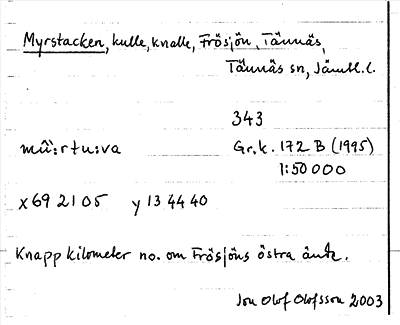 Myrstacken, kulle, knalle, Frösjön, Tännäs,
Tännäs sn, Jämtl. l.
343
Gr.k. 172 B (1995)
1:50 000
x 69 21 05 y 13 44 40
Knapp kilometer no. om Frösjöns östra ände.
Jon Olof Olofsson 2003